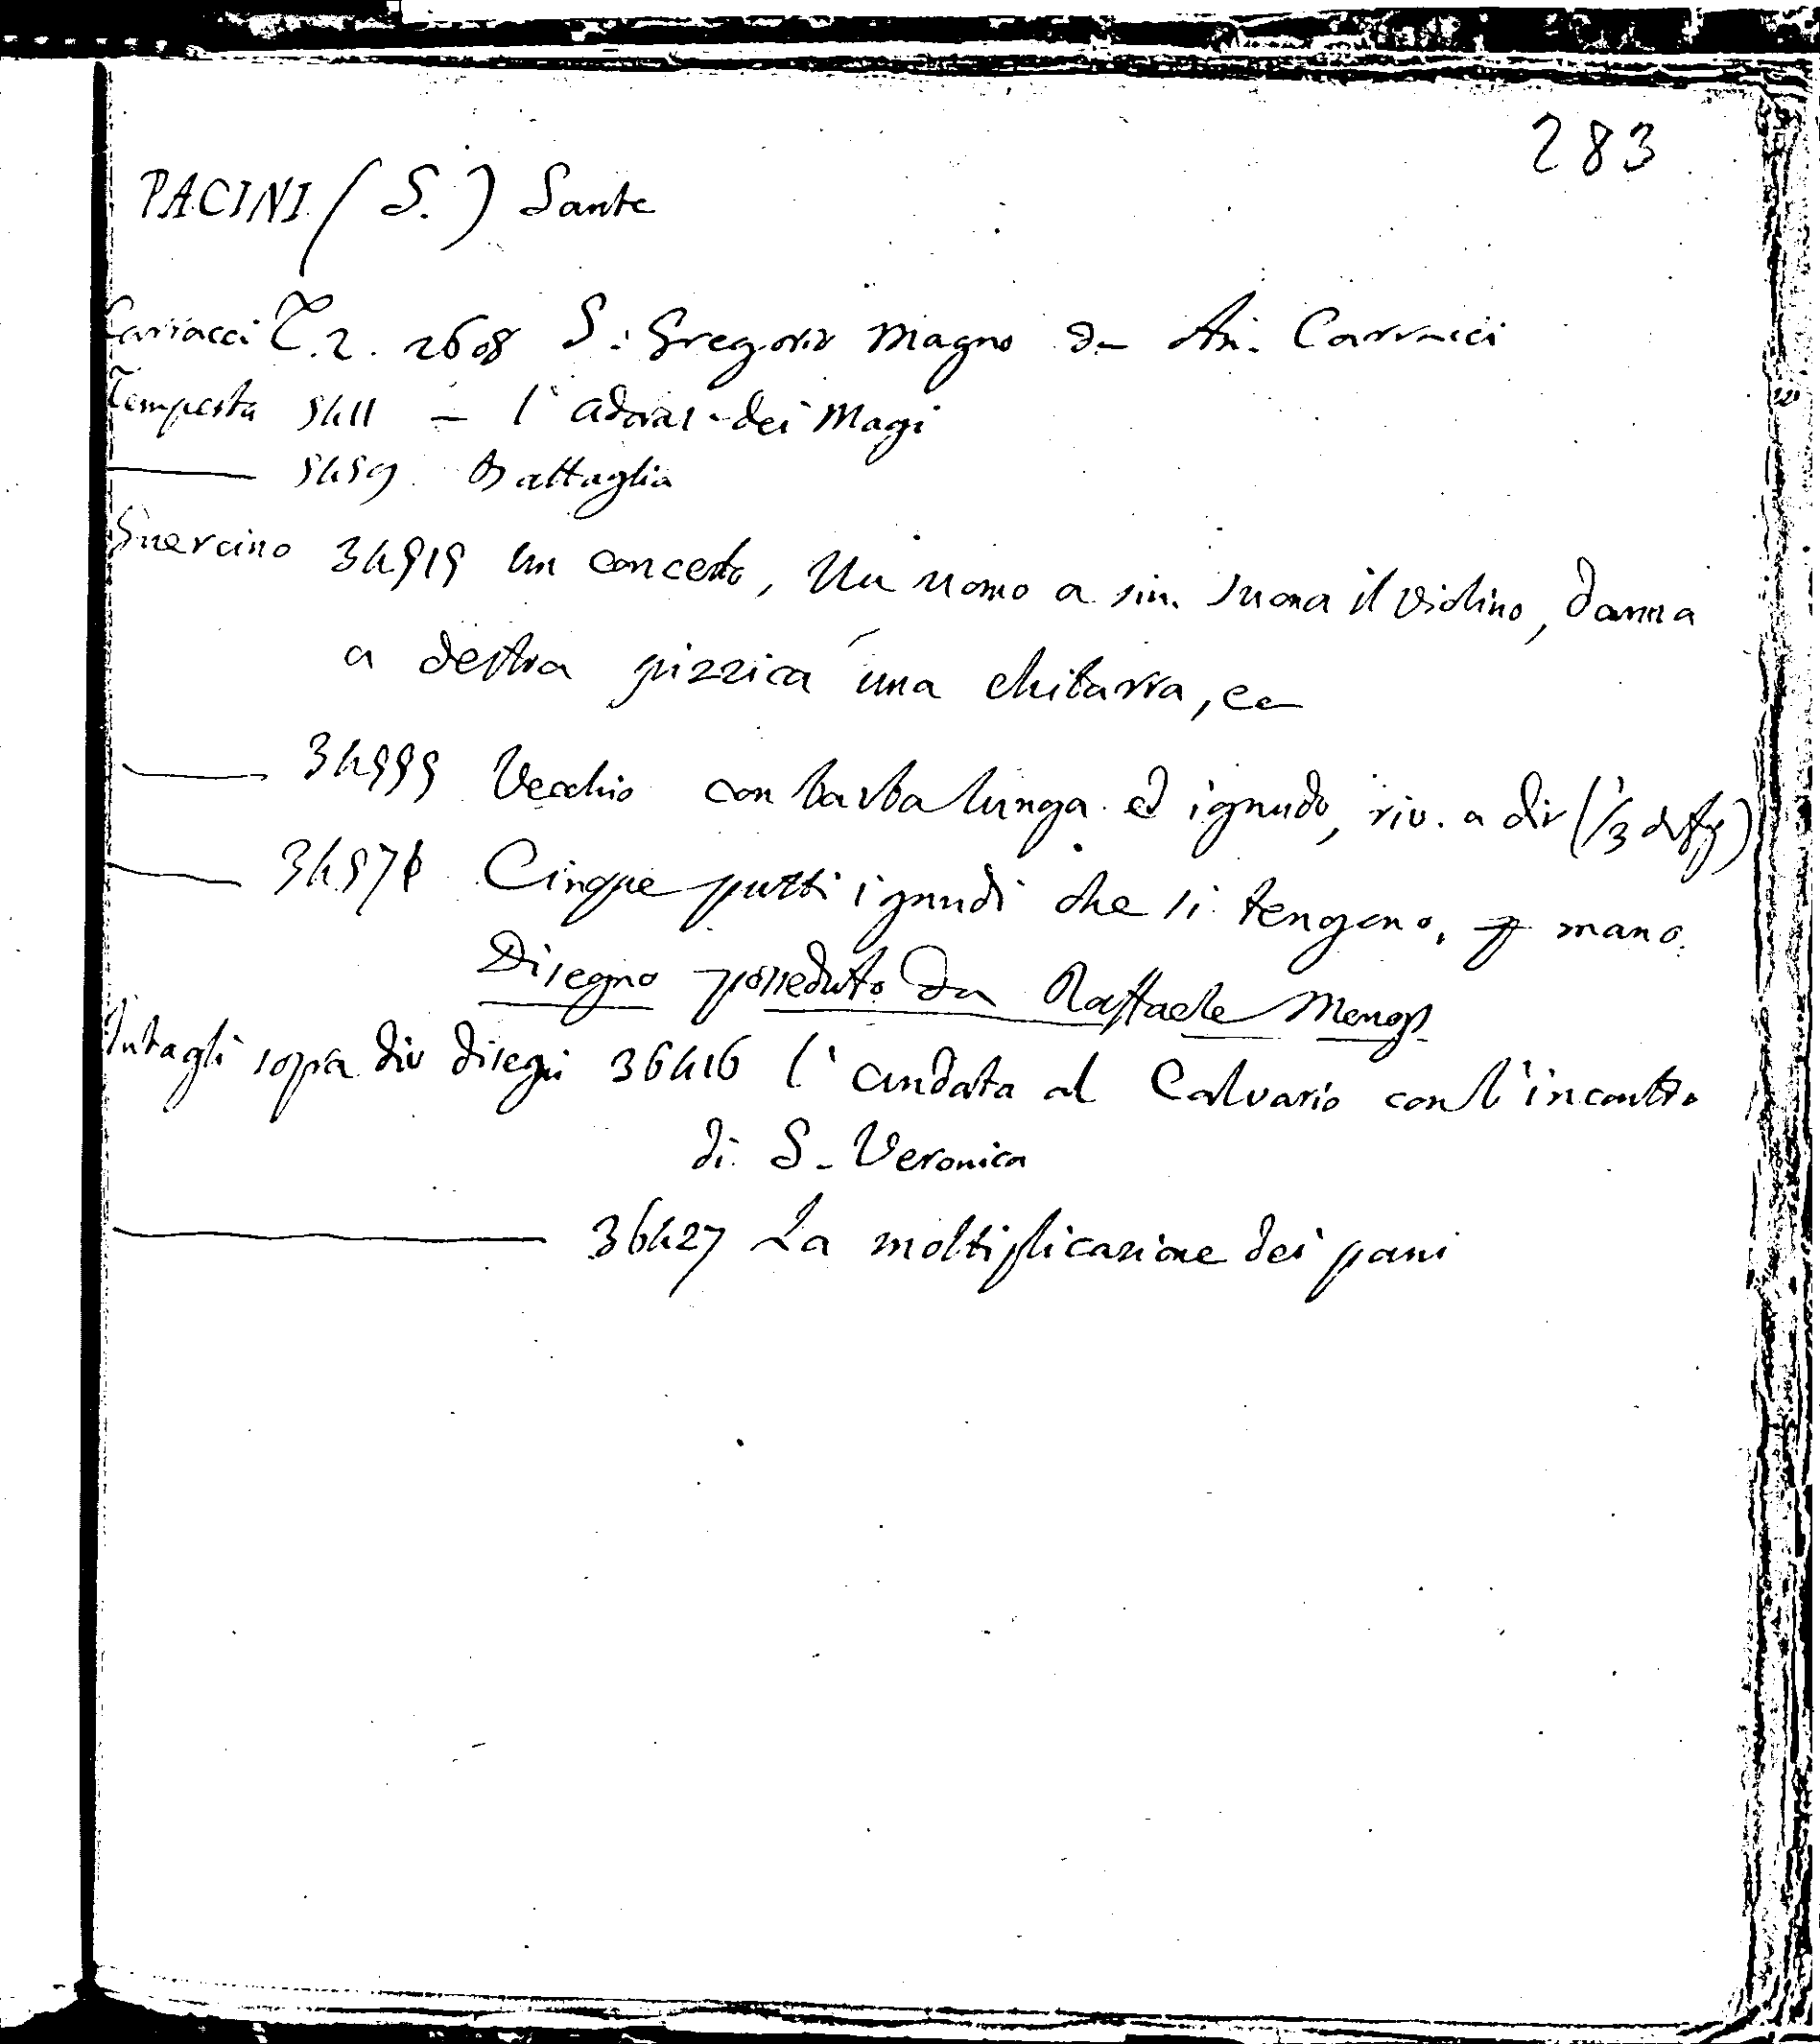 283
PACINI (S.) Sante
Carracci T.2. 2608 S. Gregorio Magno da An. Carracci
Tempesta 5411 – l'adoraz. dei Magi
——— 5459 Battaglia
Guercino 34919 un concerto, Un uomo a sin. suona il violino, donna
a destra pizzica una chitarra, ec
——— 34999 Vecchio con barba lunga ed ignudo, riv. a dir (1/3 di fig)
——— 3497 Cinque putti ignudi che si tengono, p mano.
Disegno posseduto da Raffaele Mengs
Intagli sopra div disegni 36416 l'andata al Calvario con l'incontro
di S. Veronica
——— 36427 La moltiplicazione dei pani